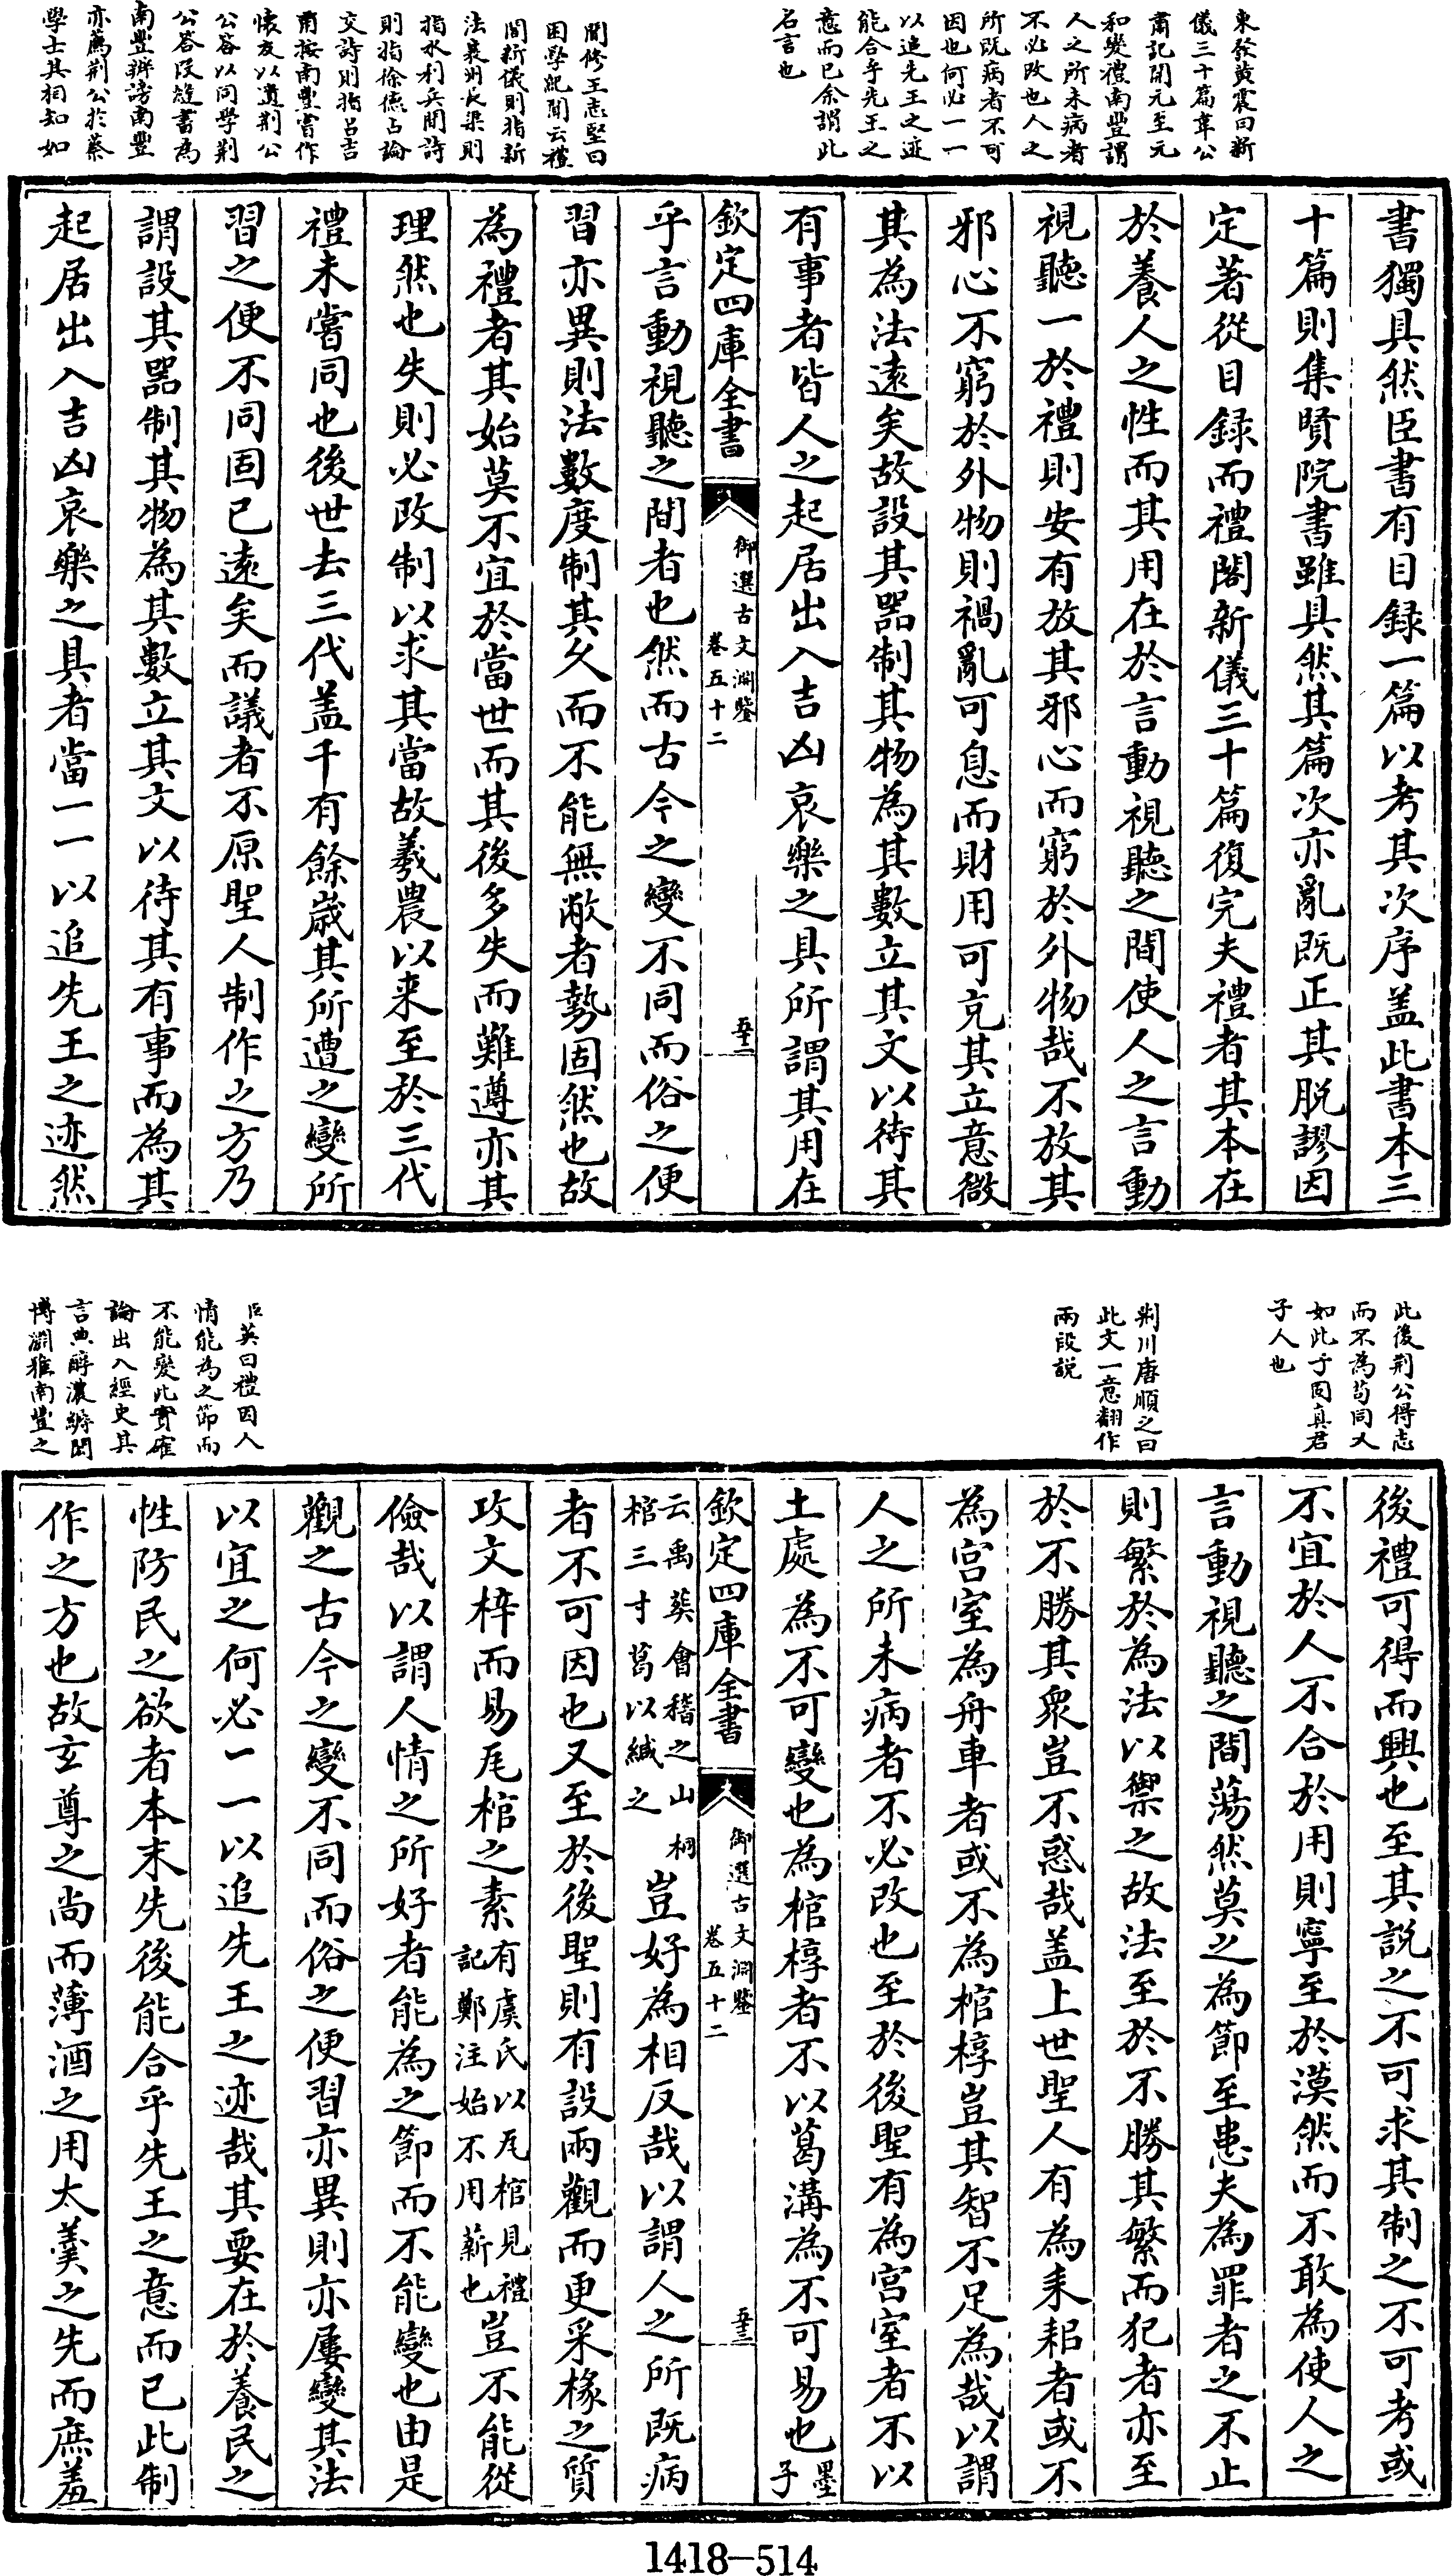 東發黄震曰新
儀三十篇韋公
肅記開元至元
和變禮南豐謂
人之所未病者
不必改也人之
所既病者不可
因也何必一一
以追先王之迹
能合乎先王之
意而已余謂此
名言也
閒修王志堅曰
困學紀聞云禮
閣新儀則指新
法襄州長渠則
指水利兵間詩
則指徐德占論
交詩則指吕吉
甫按南豐嘗作
懷友以遺荆公
公答以同學荆
公答段縫書為
南豐辯謗南豐
亦薦荆公於蔡
學士其相知如
書獨具然臣書有目録一篇以考其次序盖此書本三
十篇則集賢院書雖具然其篇次亦亂既正其脱謬因
定著從目録而禮閣新儀三十篇復完夫禮者其本在
於養人之性而其用在於言動視聽之間使人之言動
視聽一於禮則安有放其邪心而窮於外物哉不放其
邪心不窮於外物則禍亂可息而財用可充其立意微
其為法遠矣故設其器制其物為其數立其文以待其
有事者皆人之起居出入吉凶哀樂之具所謂其用在
欽定四庫全書
御選古文淵鑒
卷五十二
五十二
乎言動視聽之間者也然而古今之變不同而俗之便
習亦異則法數度制其久而不能無敝者勢固然也故
為禮者其始莫不宜於當世而其後多失而難遵亦其
理然也失則必改制以求其當故羲農以来至於三代
禮未嘗同也後世去三代盖千有餘歳其所遭之變所
習之便不同固已遠矣而議者不原聖人制作之方乃
謂設其器制其物為其數立其文以待其有事而為其
起居出入吉凶哀樂之具者當一一以追先王之迹然
此後荆公得志
而不為苟同又
如此子固真君
子人也
荆川唐順之曰
此文一意翻作
兩段説
臣英曰禮因人
情能為之節而
不能變此實確
論出入經史其
言典醇濃縟閎
博淵雅南豐之
後禮可得而興也至其説之不可求其制之不可考或
不宜於人不合於用則寧至於漠然而不敢為使人之
言動視聽之間蕩然莫之為節至患夫為罪者之不止
則繁於為法以禦之故法至於不勝其繁而犯者亦至
於不勝其衆豈不惑哉盖上世聖人有為耒耜者或不
為宫室為舟車者或不為棺椁豈其智不足為哉以謂
人之所未病者不必改也至於後聖有為宫室者不以
土處為不可變也為棺椁者不以葛溝為不可易也墨子
欽定四庫全書
御選古文淵鑒
卷五十二
五十三
云禹葬會稽之山桐棺三寸葛以緘之豈好為相反哉以謂人之所既病
者不可因也又至於後聖則有設兩觀而更采椽之質
攻文梓而易瓦棺之素有虞氏以瓦棺見禮記鄭注始不用薪也豈不能從
儉哉以謂人情之所好者能為之節而不能變也由是
觀之古今之變不同而俗之便習亦異則亦屢變其法
以宜之何必一一以追先王之迹哉其要在於養民之
性防民之欲者本末先後能合乎先王之意而已此制
作之方也故玄尊之尚而薄酒之用太羮之先而庶羞
1418—514